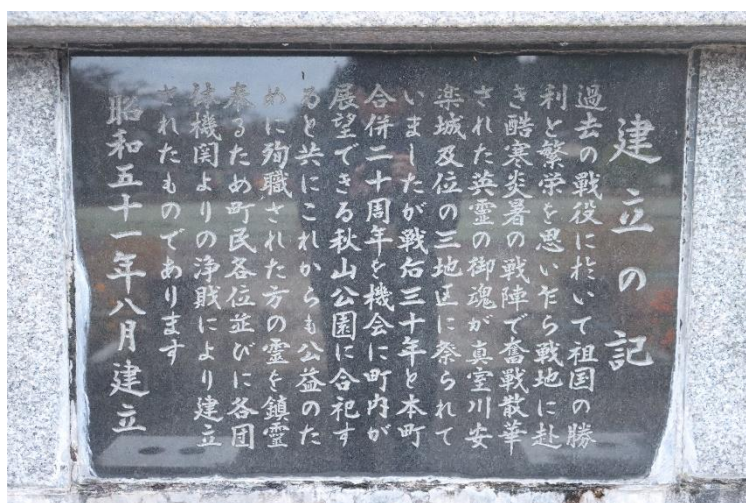 建立の記
過去の戦役に於いて祖国の勝
利と繁栄を思い乍ら戦地に赴
き酷寒炎暑の戦陣で奮戦散華
された英霊の御魂が真室川安
楽城及位の三地区に祭られて
いましたが戦后三十年と本町
合併二十周年を機会に町内が
展望できる秋山公園に合祀す
ると共にこれからも公益のた
めに殉職された方の霊を鎮霊
奉るため町民各位並びに各団
体機関よりの浄財により建立
されたものであります
昭和五十一年八月建立